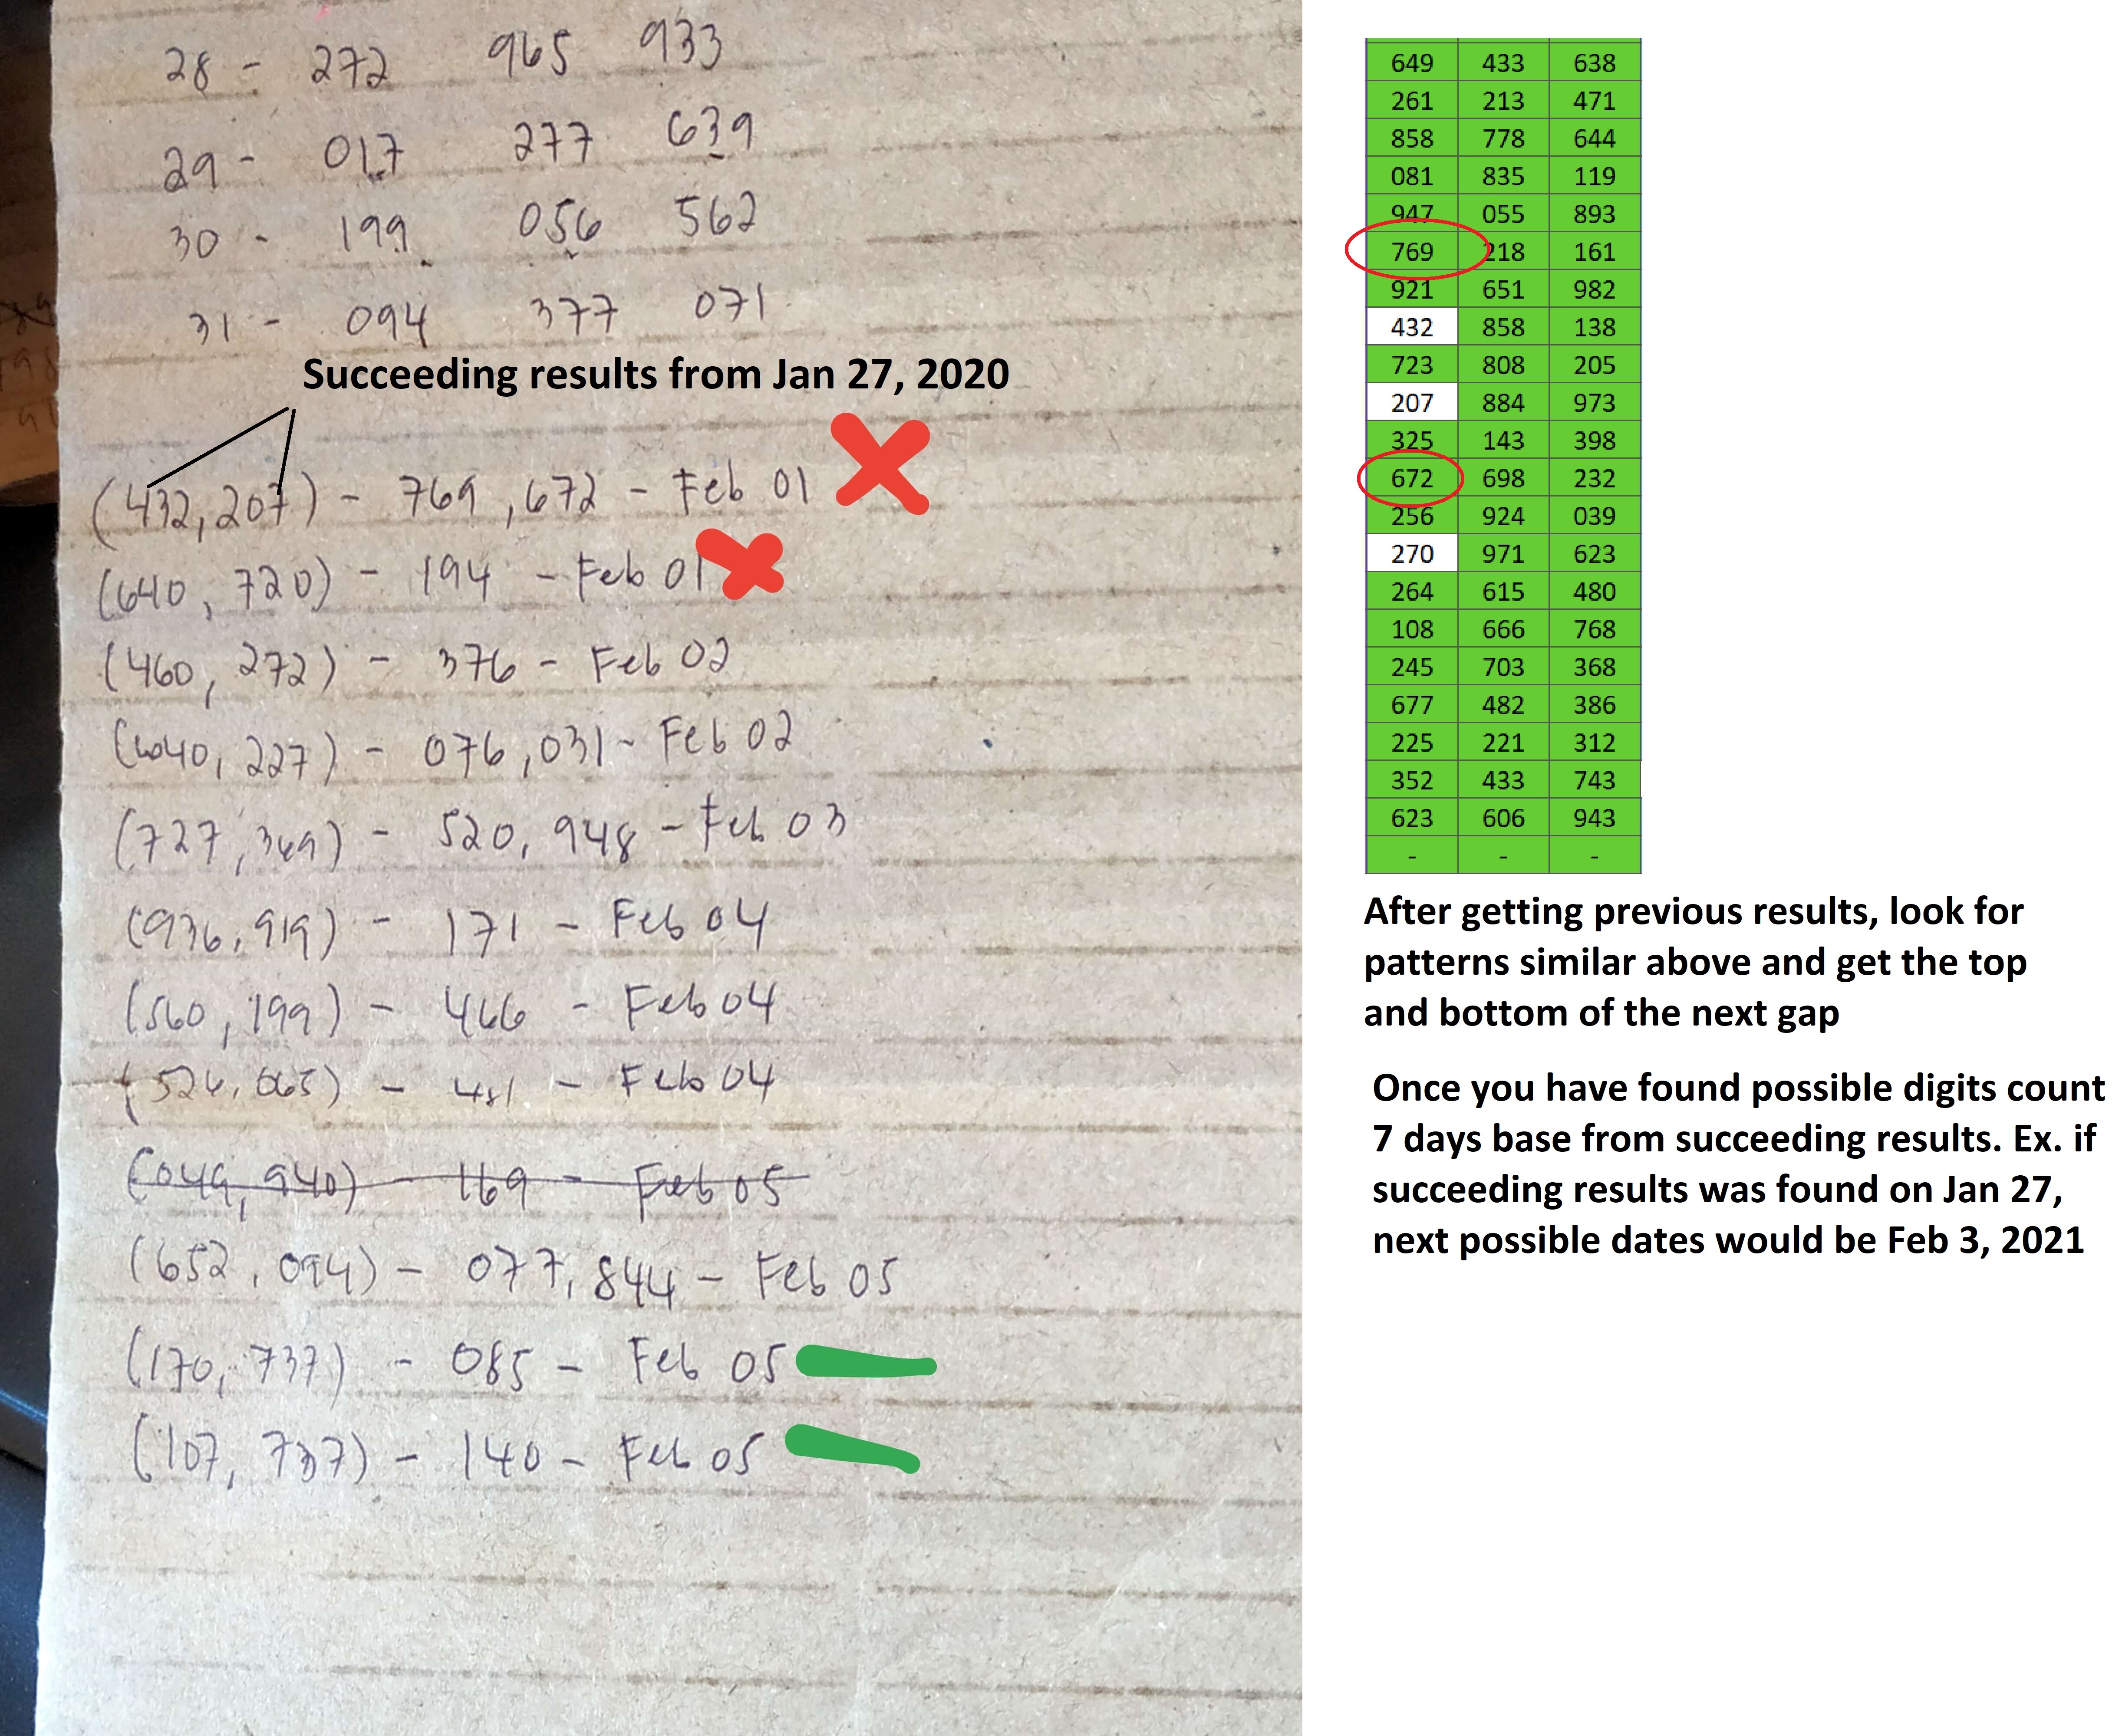 28 - 272 965 933
29 - 017 277 639
30 - 199 056 562
31 - 094 377 071
Succeeding results from Jan 27, 2020
(432, 207) - 769, 672 - Feb 01
(640, 720) - 194 - Feb 01
(460, 272) - 376 - Feb 02
(6040, 227) - 076, 031 - Feb 02
(727, 369) - 520, 948 - Feb 03
(936, 919) - 171 - Feb 04
(560, 199) - 466 - Feb 04
(526, 065) - 481 - Feb 04
(049, 940) - 169 - Feb 05
(652, 094) - 077, 844 - Feb 05
(170, 737) - 085 - Feb 05
(107, 737) - 140 - Feb 05
649 433 638
261 213 471
858 778 644
081 835 119
947 055 893
769 218 161
921 651 982
432 858 138
723 808 205
207 884 973
325 143 398
672 698 232
256 924 039
270 971 623
264 615 480
108 666 768
245 703 368
677 482 386
225 221 312
352 433 743
623 606 943
- - -
After getting previous results, look for
patterns similar above and get the top
and bottom of the next gap
Once you have found possible digits count
7 days base from succeeding results. Ex. if
succeeding results was found on Jan 27,
next possible dates would be Feb 3, 2021